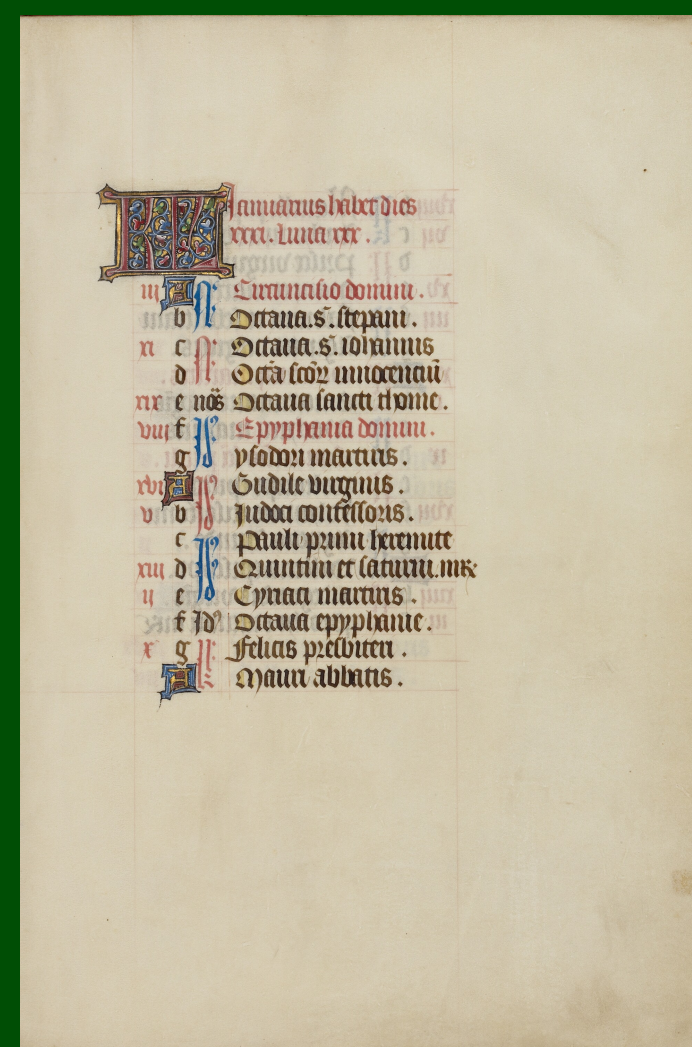 KL Ianuarius habet dies
xxxi. Luna xxx.
iii A Circuncisio domini.
b Octaua. s. stepani.
xi c Octaua. s. iohannis
d Octa scoꝝ innocenciū
xix e nōs Octaua sancti thome.
viii f Epyphania domini.
g ysodori martiris.
xvi A Gudile virginis.
v b Judoci confessoris.
c Pauli primi heremite
xiii d Quintini et saturni. mr̄
ii e Cyriaci martiris.
f Idꝰ Octaua epyphanie.
x g Felicis presbiteri.
A Mauri abbatis.